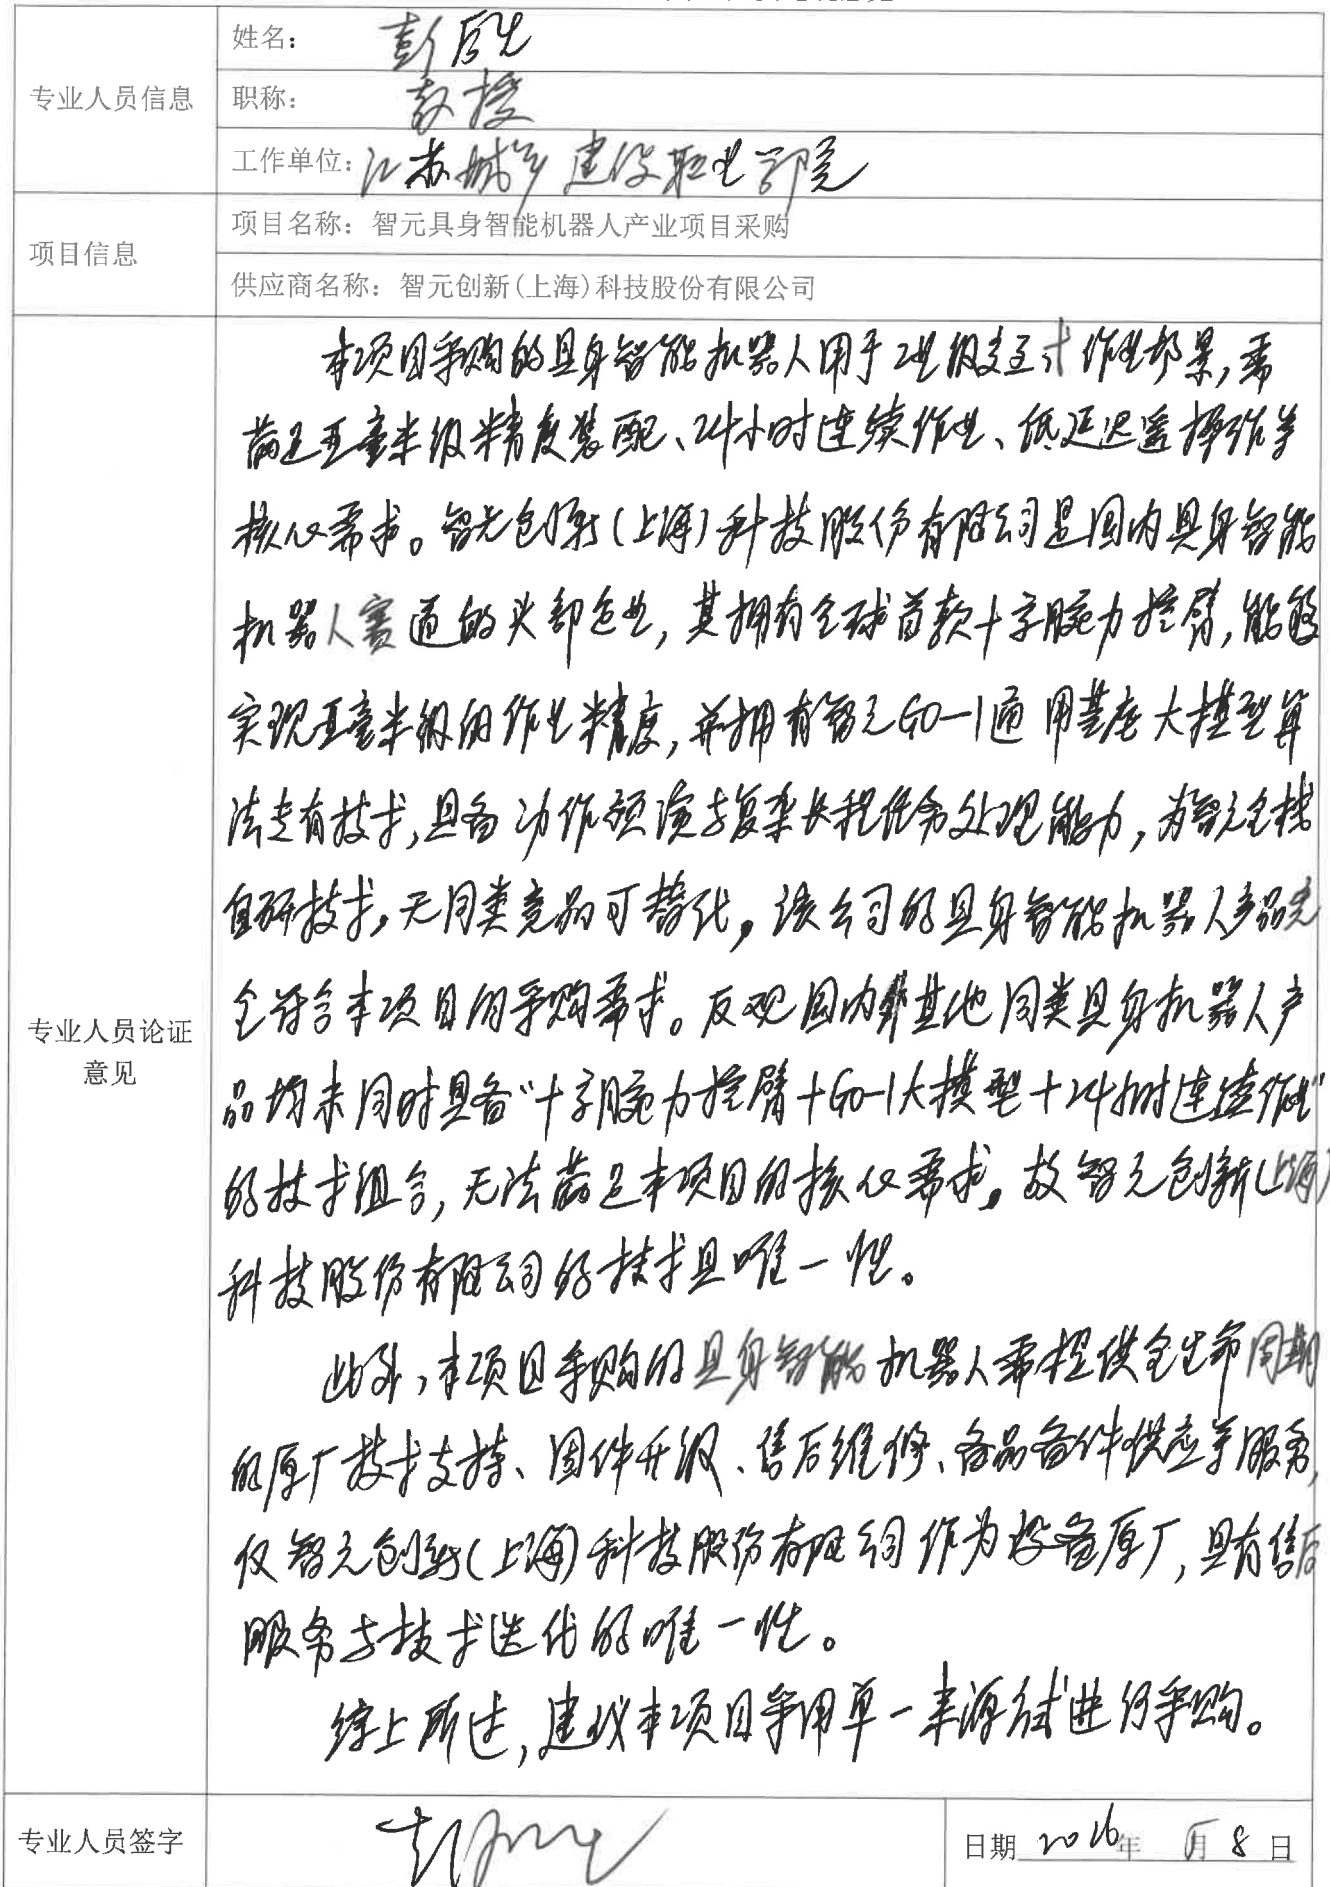 专业人员信息
姓名：彭
职称：教授
工作单位：江苏城乡建设职业学院
项目信息
项目名称：智元具身智能机器人产业项目采购
供应商名称：智元创新(上海)科技股份有限公司
专业人员论证
意见
本项目采购的具身智能机器人用于工业级 作业场景，需
满足亚毫米级精度装配、24小时连续作业、低延迟遥操作等
核心需求。智元创新(上海)科技股份有限公司是国内具身智能
机器人赛道的头部企业，其拥有全球首款十字腕力控臂，能够
实现亚毫米级的作业精度，并拥有智元GO-1通用基座大模型算
法专有技术，具备动作预演与复杂长程任务处理能力，为智元全栈
自研技术，无同类竞品可替代，该公司的具身智能机器人产品完
全符合本项目的采购需求。反观国内其他同类具身机器人产
品均未同时具备“十字腕力控臂+GO-1大模型+24小时连续作业”
的技术组合，无法满足本项目的核心需求。故智元创新(上海)
科技股份有限公司的技术具唯一性。
此外，本项目采购的具身智能机器人需提供全生命周期
的原厂技术支持、固件升级、售后维修、备品备件供应等服务，
仅智元创新(上海)科技股份有限公司作为设备原厂，具有售后
服务与技术迭代的唯一性。
综上所述，建议本项目采用单一来源方式进行采购。
专业人员签字
日期 2026年 月8日